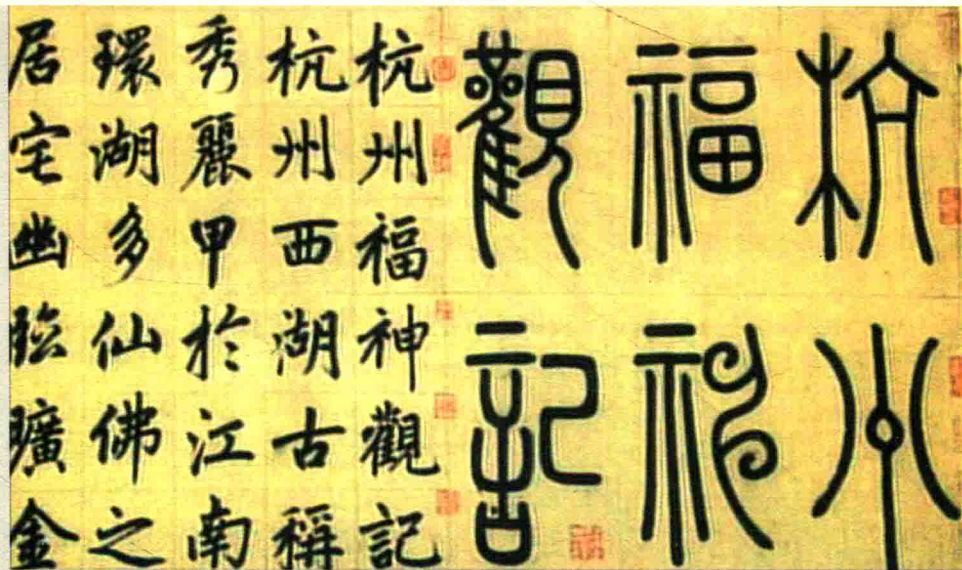 杭州
福神
觀記
杭州福神觀記
杭州西湖古稱
秀麗甲於江南
環湖多仙佛之
居宅幽險曠金